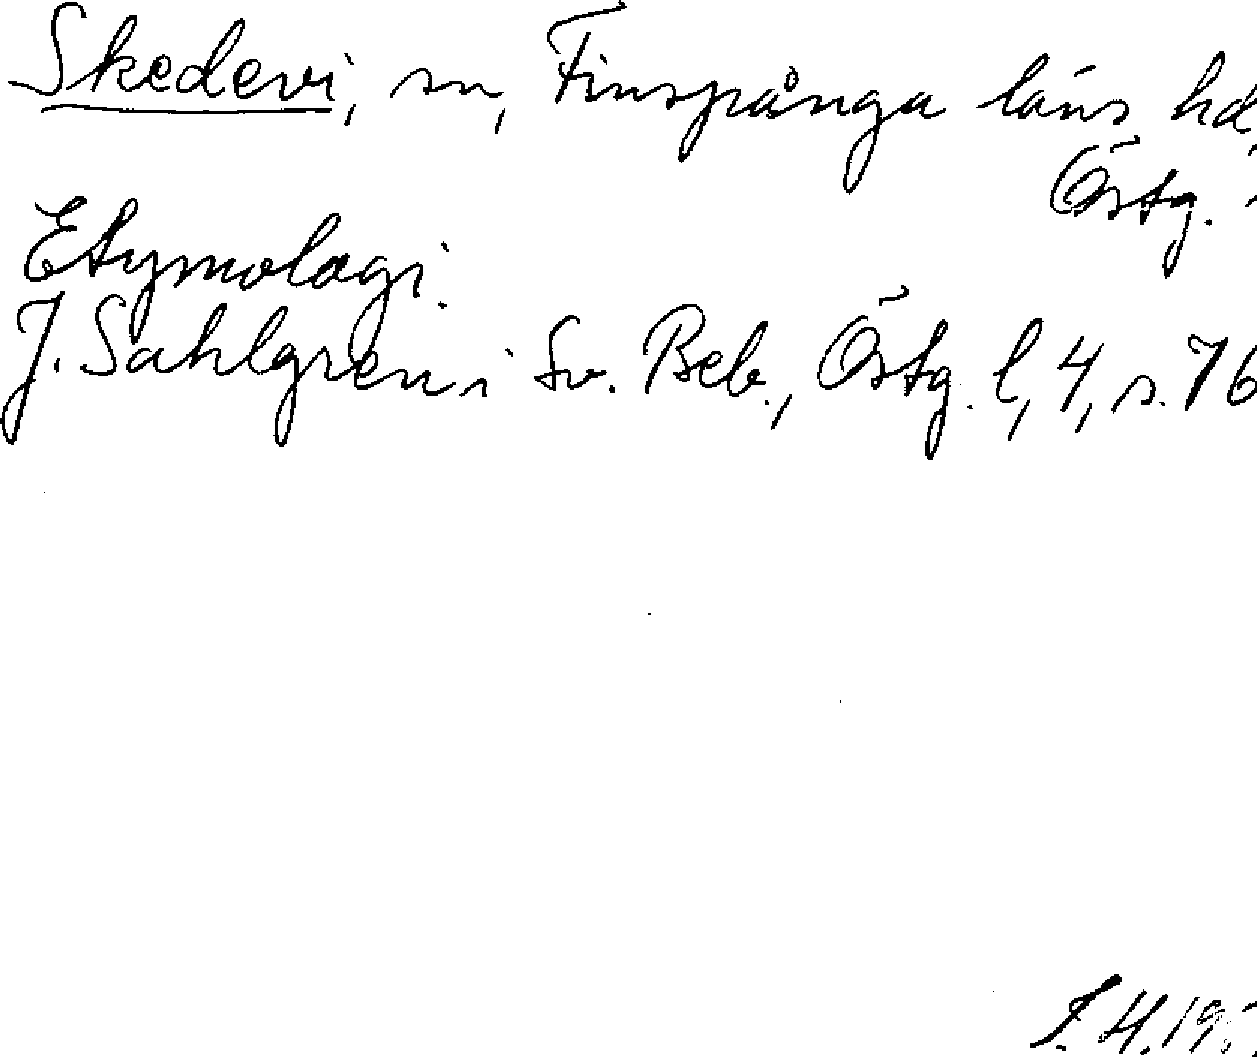 Skedevi, sn, Finspånga läns hd,
Östg.
Etymologi.
J. Sahlgren i Sv. Beb., Östg. l, 4, s. 76